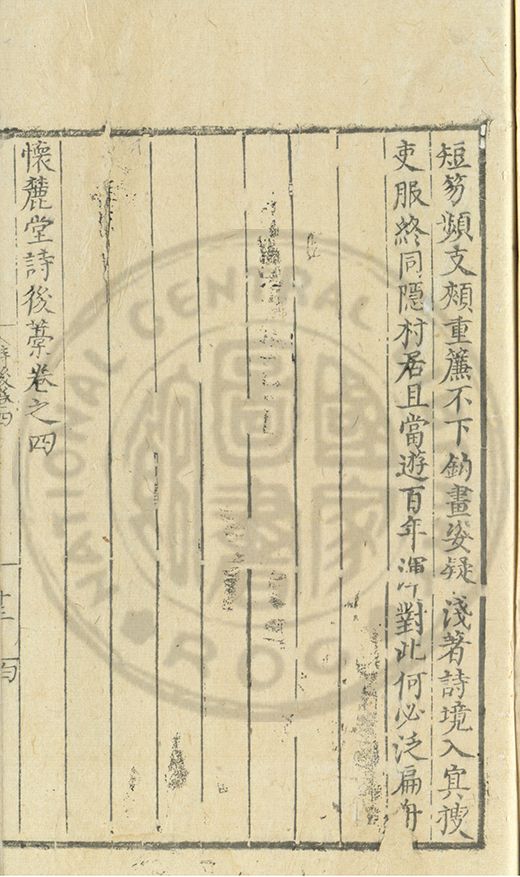 短笻頻支頰重簾不下鈎畫姿疑淺著詩境入冥搜
吏服終同隱村居且當遊百年渾對此何必泛扁舟
懷麓堂詩後藁卷之四
NATIONAL CENTRAL